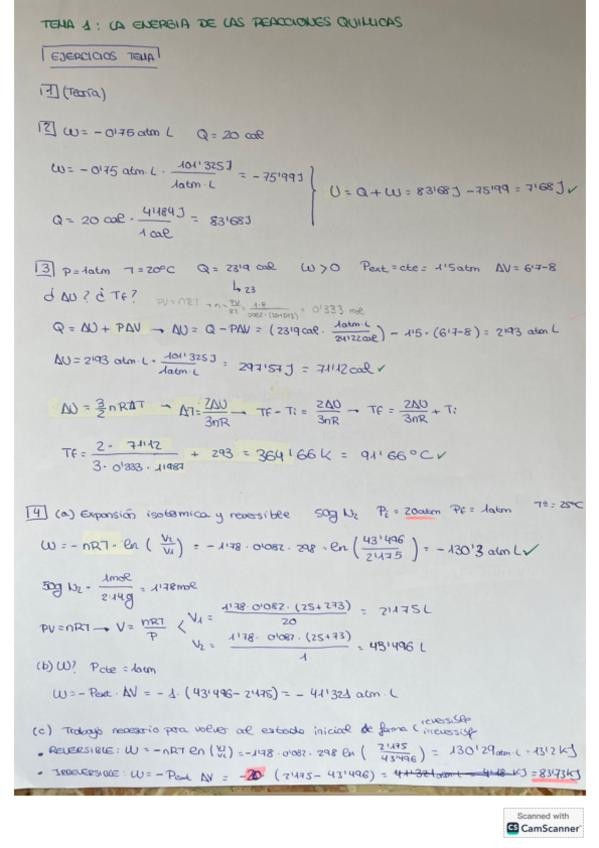 TEMA 1: LA ENERGIA DE LAS REACCIONES QUIMICAS
EJERCICIOS TEMA
1 (Teoría)
2 W = - 0'75 atm L Q = 20 cal
W = - 0'75 atm · L · 101'325 J / 1 atm · L = - 75'99 J
U = Q + W = 83'68 J - 75'99 = 7'68 J ✓
Q = 20 cal · 4'184 J / 1 cal = 83'68 J
3 P = 1 atm T = 20ºC Q = 23'9 cal W > 0 Pext = cte = 1'5 atm ΔV = 6'7-8
↳ 23
¿ ΔU? ¿ Tf? PV = nRT → n = PV/RT = = 0'333 mol
Q = ΔU + PΔV → ΔU = Q - PΔV = (23'9 cal · 1 atm · L / 24'22 cal) - 1'5 · (6'7-8) = 2'93 atm L
ΔU = 2'93 atm · L · 101'325 J / 1 atm · L = 297'57 J = 71'12 cal ✓
ΔU = 3/2 nRΔT → ΔT = 2ΔU / 3nR → Tf - Ti = 2ΔU / 3nR → Tf = 2ΔU / 3nR + Ti
Tf = 2 · 71'12 / 3 · 0'333 · 1'1987 + 293 = 364'66 K = 91'66ºC ✓
4 (a) Expansión isotérmica y reversible 50g N₂ Pi = 20 atm Pf = 1 atm Tª = 25ºC
W = - nRT · ln (V₂/V₁) = - 1'78 · 0'082 · 298 · ln (43'496 / 2'175) = - 130'3 atm L ✓
50g N₂ · 1 mol / 2·14 g = 1'78 mol
PV = nRT → V = nRT / P < V₁ = 1'78 · 0'082 · (25+273) / 20 = 2'175 L
V₂ = 1'78 · 0'082 · (25+73) / 1 = 43'496 L
(b) W? P cte = 1 atm
W = - Pext · ΔV = - 1 · (43'496 - 2'175) = - 41'321 atm · L
(c) Trabajo necesario para volver al estado inicial de forma (reversible irreversible
• REVERSIBLE: W = - nRT ln (V₂/V₁) = - 1'78 · 0'082 · 298 ln (2'175 / 43'496) = 130'29 atm · L = 13'2 KJ
• IRREVERSIBLE: W = - Pext ΔV = - 20 (2'175 - 43'496) = 41'321 atm · L = 4'18 KJ = 83'73 KJ
Scanned with
CS CamScanner